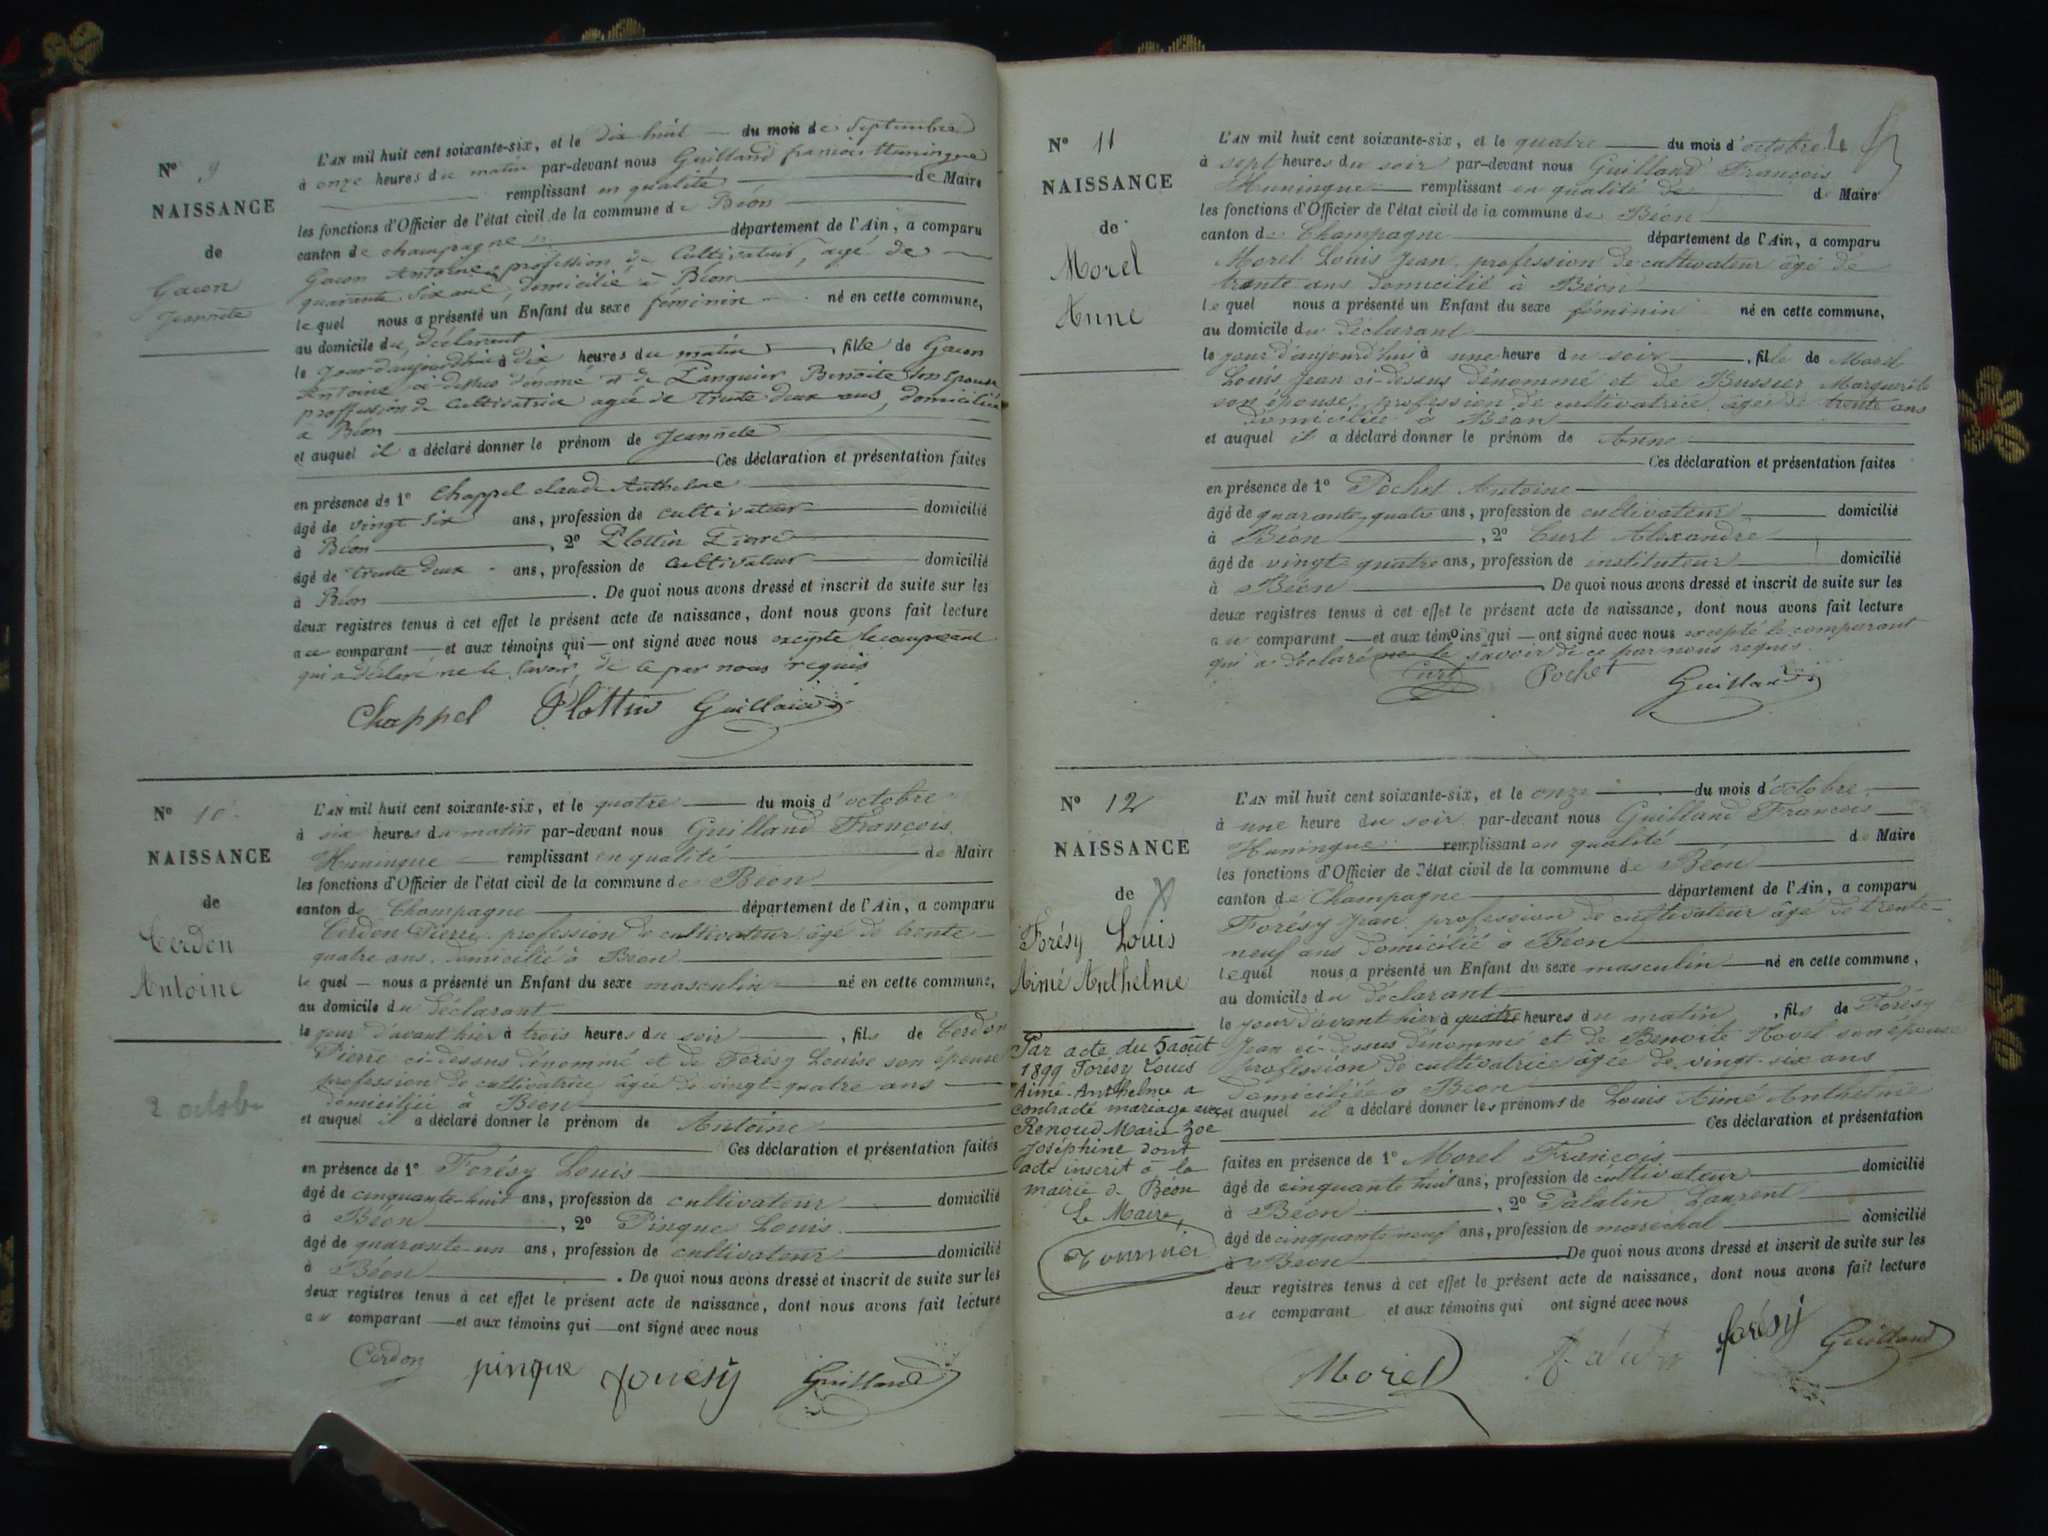 N° 9
NAISSANCE
de
Gacon
Jeannete
L'AN mil huit cent soixante-six, et le dix huit du mois de Septembre
à onze heures du matin par-devant nous Guilland françois Huningue
remplissant en qualité de Maire
les fonctions d'Officier de l'état civil de la commune de Béon
canton de champagne département de l'Ain, a comparu
Gacon Antoine profession de Cultivateur, agé de
quarante six ans, domicilié à Béon
lequel nous a présenté un Enfant du sexe féminin né en cette commune,
au domicile du déclarant
le jour d'aujourdhui à dix heures du matin, fille de Gacon
Antoine ci dessus dénomé et de Benoite son épouse
proffession de cultivatrice agée de trente deux ans, domiciliée
a Béon
et auquel il a déclaré donner le prénom de Jeannete
Ces déclaration et présentation faites
en présence de 1° Chappel claude Anthelme
âgé de vingt six ans, profession de cultivateur domicilié
à Béon, 2° Plottin Pierre
âgé de trente deux ans, profession de cultivateur domicilié
à Béon. De quoi nous avons dressé et inscrit de suite sur les
deux registres tenus à cet effet le présent acte de naissance, dont nous avons fait lecture
au comparant et aux témoins qui ont signé avec nous excepté le comparant
qui a déclaré ne le savoir, de ce par nous requis
Chappel Plottin Guilland
N° 10
NAISSANCE
de
Cerdon
Antoine
2 octobre
L'AN mil huit cent soixante-six, et le quatre du mois d'octobre
à six heures du matin par-devant nous Guilland François
Huningue remplissant en qualité de Maire
les fonctions d'Officier de l'état civil de la commune de Béon
canton de Champagne département de l'Ain, a comparu
Cerdon Pierre profession de cultivateur âgé de trente
quatre ans, domicilié à Béon
lequel nous a présenté un Enfant du sexe masculin né en cette commune,
au domicile du déclarant
le jour d'avant hier à trois heures du soir, fils de Cerdon
Pierre ci-dessus dénommé et de Forésy Louise son épouse
profession de cultivatrice âgée de vingt-quatre ans
domiciliée à Béon
et auquel il a déclaré donner le prénom de Antoine
Ces déclaration et présentation faites
en présence de 1° Forésy Louis
âgé de cinquante-huit ans, profession de cultivateur domicilié
à Béon, 2° Pinque Louis
âgé de quarante-un ans, profession de cultivateur domicilié
à Béon. De quoi nous avons dressé et inscrit de suite sur les
deux registres tenus à cet effet le présent acte de naissance, dont nous avons fait lecture
au comparant et aux témoins qui ont signé avec nous
Cerdon pinque forésy Guilland
N° 11
NAISSANCE
de
Morel
Anne
L'AN mil huit cent soixante-six, et le quatre du mois d'octobre
à sept heures du soir par-devant nous Guilland François
Huningue remplissant en qualité de de Maire
les fonctions d'Officier de l'état civil de la commune de Béon
canton de Champagne département de l'Ain, a comparu
Morel Louis Jean profession de cultivateur âgé de
trente ans domicilié à Béon
lequel nous a présenté un Enfant du sexe féminin né en cette commune,
au domicile du déclarant
le jour d'aujourd'hui à une heure du soir, fille de Morel
Louis Jean ci-dessus dénommé et de Bussier Marguerite
son épouse, profession de cultivatrice âgée de trente ans
domiciliée à Béon
et auquel il a déclaré donner le prénom de Anne
Ces déclaration et présentation faites
en présence de 1° Pochet Antoine
âgé de quarante-quatre ans, profession de cultivateur domicilié
à Béon, 2° Curt Alexandre
âgé de vingt-quatre ans, profession de instituteur domicilié
à Béon. De quoi nous avons dressé et inscrit de suite sur les
deux registres tenus à cet effet le présent acte de naissance, dont nous avons fait lecture
au comparant et aux témoins qui ont signé avec nous excepté le comparant
qui a déclaré ne le savoir de ce par nous requis.
Curt Pochet Guilland
N° 12
NAISSANCE
de
Forésy Louis
Aimé Anthelme
Par acte du 5 août
1899 Forésy Louis
Aimé-Anthelme a
contracté mariage avec
Renoud Marie Zoé
Joséphine dont
acte inscrit à la
mairie de Béon
Le Maire,
Fournier
L'AN mil huit cent soixante-six, et le onze du mois d'octobre
à une heure du soir par-devant nous Guilland François
Huningue remplissant en qualité de Maire
les fonctions d'Officier de l'état civil de la commune de Béon
canton de Champagne département de l'Ain, a comparu
Forésy Jean profession de cultivateur âgé de trente-
neuf ans domicilié à Béon
lequel nous a présenté un Enfant du sexe masculin né en cette commune,
au domicile du déclarant
le jour d'avant hier à quatre heures du matin, fils de Forésy
Jean ci-dessus dénommé et de Benoite Morel son épouse
profession de cultivatrice âgée de vingt-six ans
domiciliée à Béon
et auquel il a déclaré donner les prénoms de Louis Aimé Anthelme
Ces déclaration et présentation
faites en présence de 1° Morel François
âgé de cinquante huit ans, profession de cultivateur domicilié
à Béon, 2° Palatin Laurent
âgé de cinquante neuf ans, profession de maréchal domicilié
à Béon De quoi nous avons dressé et inscrit de suite sur les
deux registres tenus à cet effet le présent acte de naissance, dont nous avons fait lecture
au comparant et aux témoins qui ont signé avec nous
Morel forésy Guilland